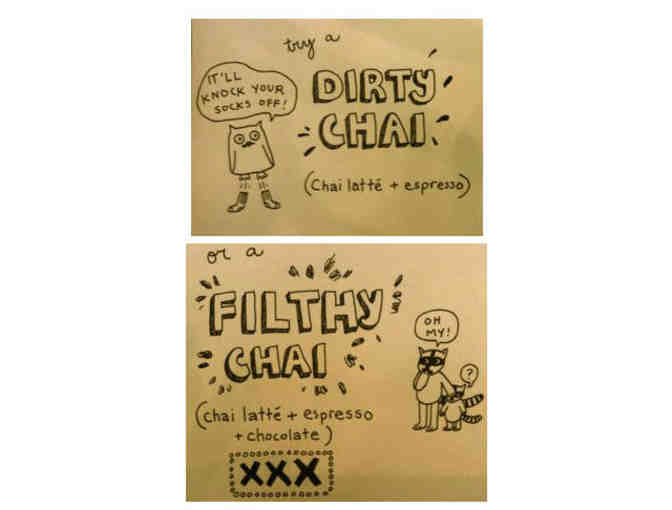 try a
IT'LL
KNOCK YOUR
SOCKS OFF!
DIRTY
CHAI
(Chai latté + espresso)
or a
FILTHY
CHAI
OH
MY!
?
(chai latté + espresso
+ chocolate)
XXX